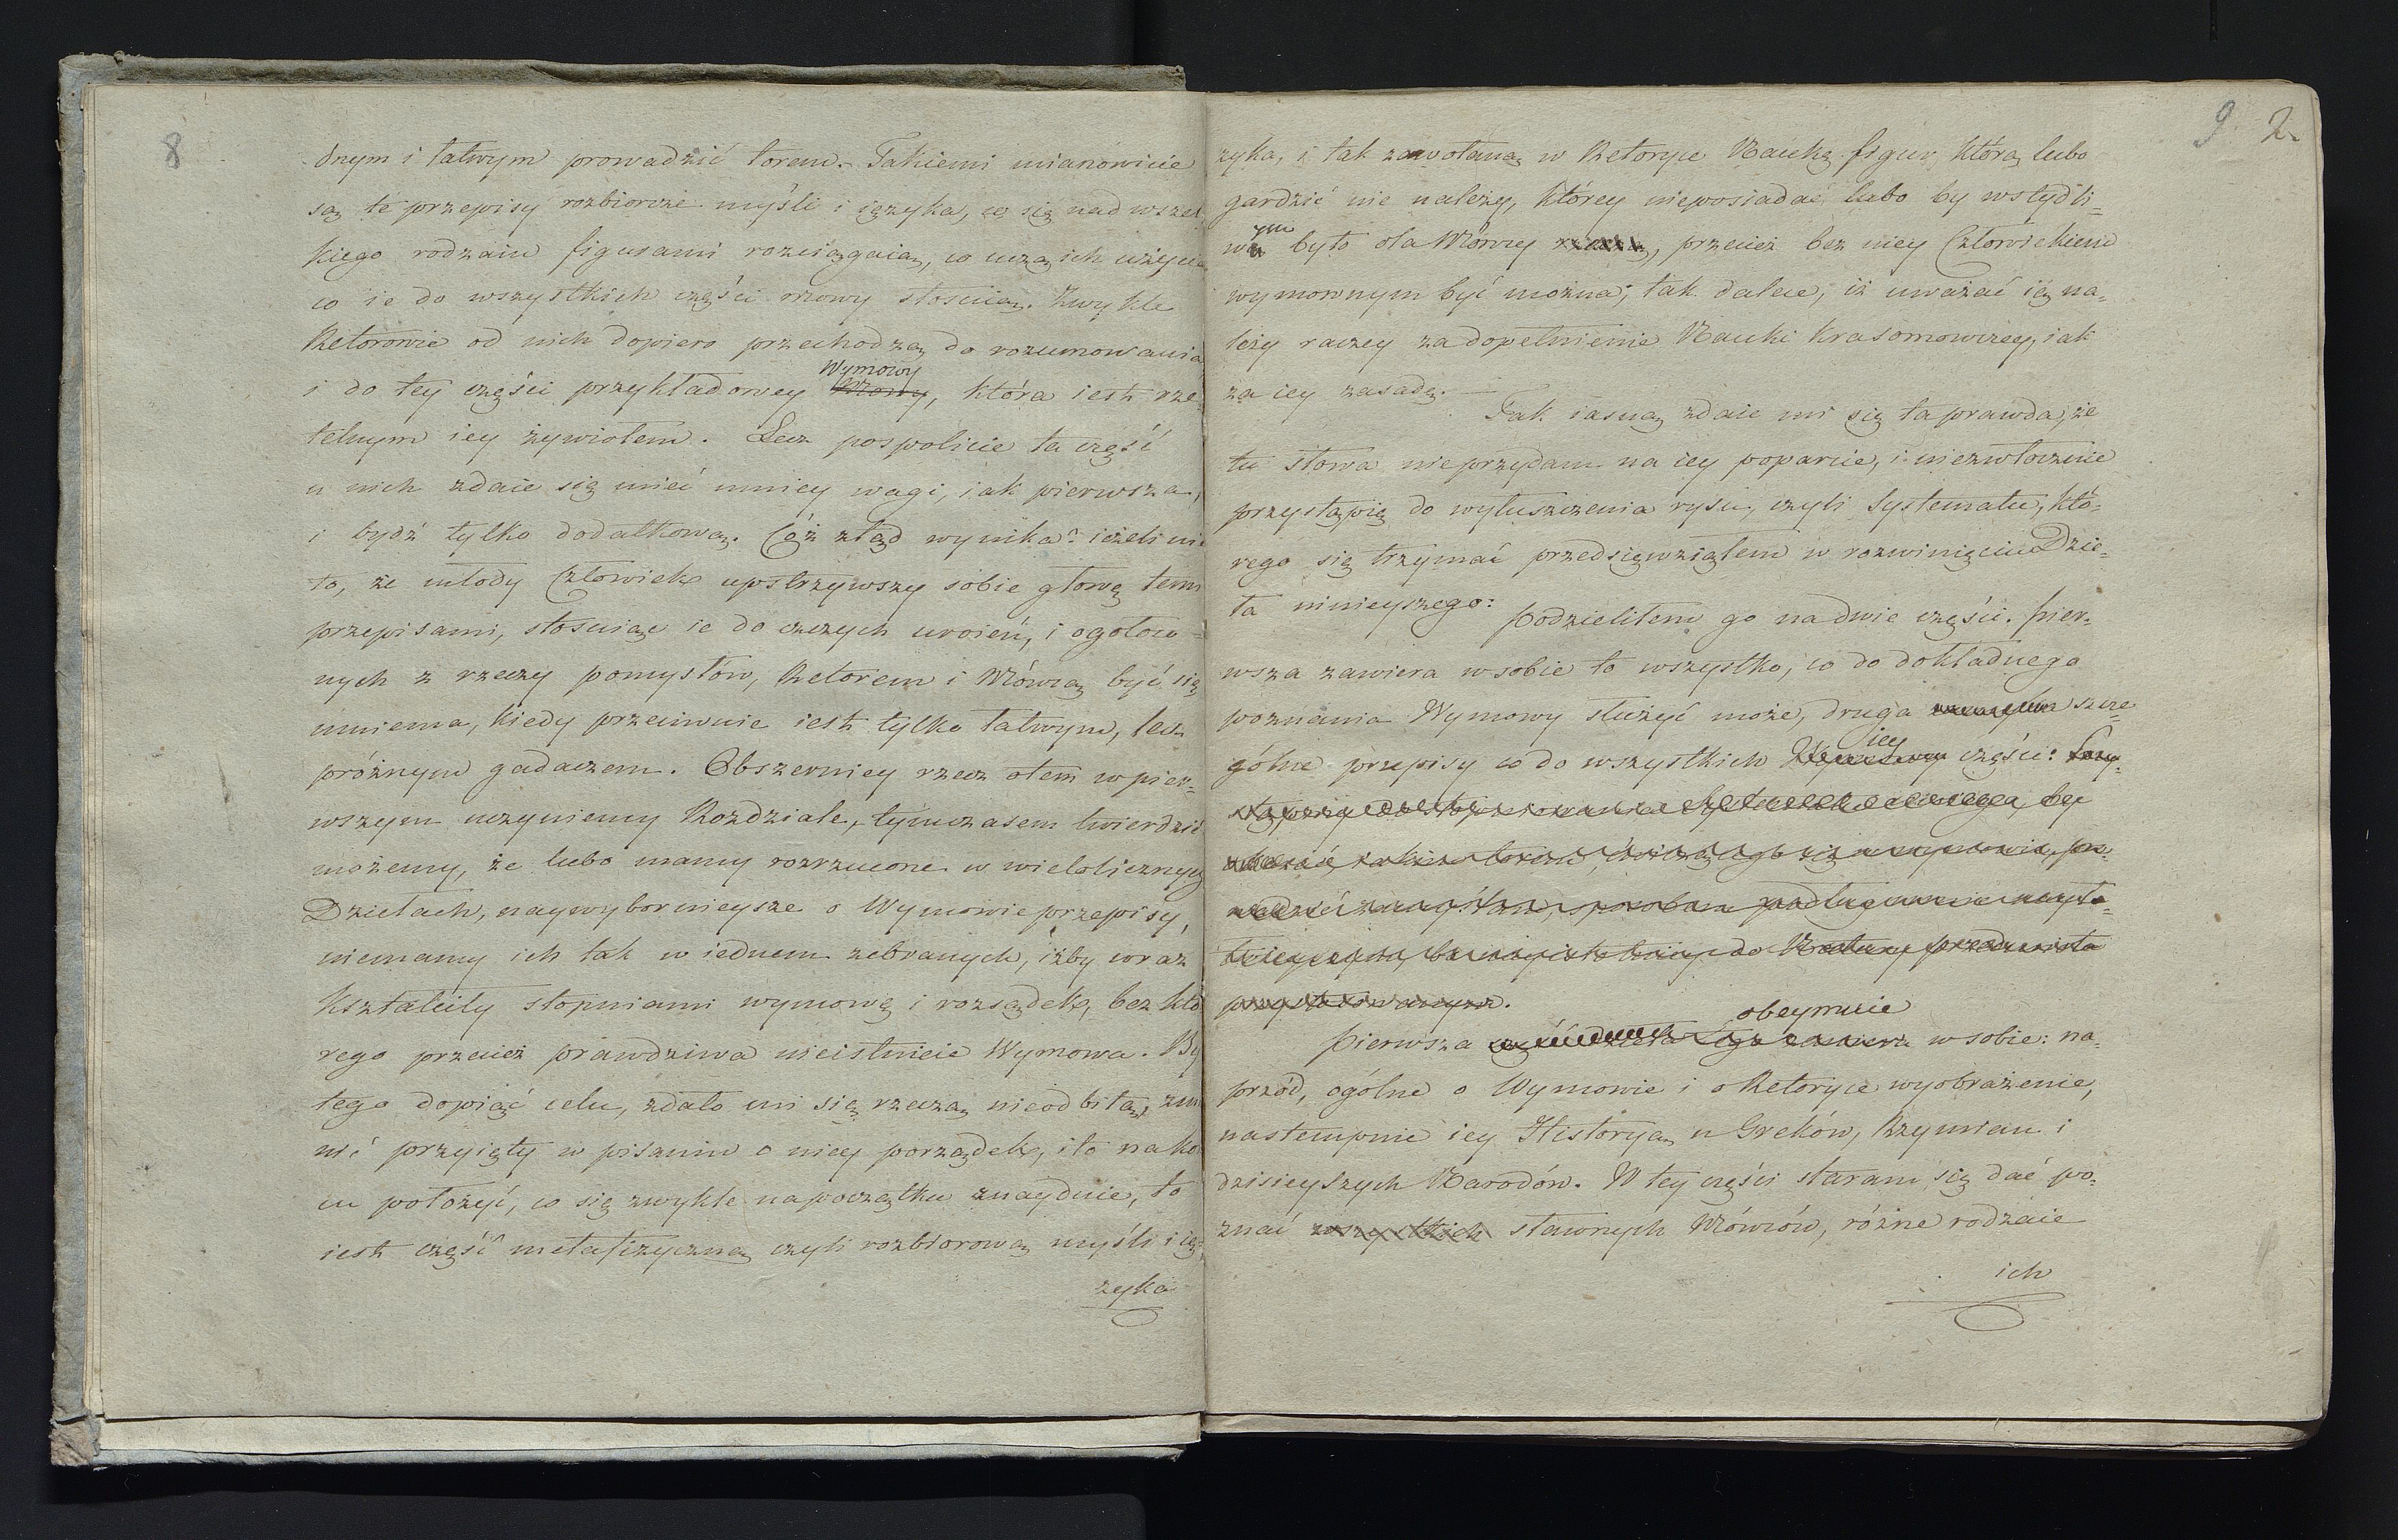 8
dnym i łatwym prowadzić torem. Takiemi mianowicie
są te przepisy rozbiorcze myśli i ięzyka, co się nad wszel
kiego rodzaiu figurami rozciągaią, co uczą ich użycia
co ie do wszystkich części mowy stosuią. Zwykle
Retorowie od nich dopiero przechodzą do rozumowania
Wymowy
i do tey części przykładowey Mowy, która iest rze-
telnym iey żywiołem. Lecz pospolicie ta część
u nich zdaie się mieć mniey wagi, iak pierwsza,
i bydź tylko dodatkową. Cóż ztąd wynika? ieżeli nie
to, że młody Człowiek upstrzywszy sobie głowę temi
przepisami, stosuiąc ie do czczych uroień, i ogołoco=
nych z rzeczy pomysłów, Retorem i Mówcą być się
mniema, kiedy przeciwnie iest tylko łatwym, lecz
próżnym gadaczem. Obszerniey rzecz o tem w pier=
wszym uczyniemy Rozdziale, tymczasem twierdzić
możemy, że lubo mamy rozrzucone w wielolicznych
Dziełach, naywybornieysze o Wymowie przepisy,
niemamy ich tak w iednem zebranych, iżby wraz
kształciły stopniami wymowę i rozsądek, bez któ
rego przecież prawdziwa nieistnieie Wymowa. By
tego dopiąć celu, zdało mi się rzeczą nieodbitą, zmie
nić przyięty w pisaniu o niey porządek, i to na koń
cu położyć, co się zwykle na początku znayduie, to
iest część metafizyczną czyli rozbiorową myśli i ię=
zyka
9 2.
zyka, i tak zawołaną w Retoryce Naukę figur, którą lubo
gardzić nie należy, którey nieposiadać lubo by wstydli=
ym
wą było dla Mówcy rzeczą, przecież bez niey Człowiekiem
wymownym być można; tak dalece, iż uważać ią na=
leży raczey za dopełnienie Nauki krasomowczey, iak
za iey zasadę. —
Tak iasną zdaie mi się ta prawda, że
tu słowa nieprzydam na iey poparcie, i niezwłocznie
przystąpię do wyłuszczenia rysu, czyli Systematu, któ=
rego się trzymać przedsięwziąłem w rozwinięciu Dzie=
ła ninieyszego:
Podzieliłem go na dwie części. Pier=
wsza zawiera w sobie to wszystko, co do dokładnego
poznania Wymowy służyć może, druga szcze=
iey
gólne przepisy co do wszystkich Wymowy części:
być
Natury przedmiotu
przystosowanym.
obeymuie
Pierwsza w sobie: na=
przód, ogólne o Wymowie i o Retoryce wyobrażenie,
nastempnie iey Historyą u Greków, Rzymian i
dzisieyszych Narodów. W tey części staram się dać po=
znać wszystkich sławnych Mówców, różne rodzaie
ich